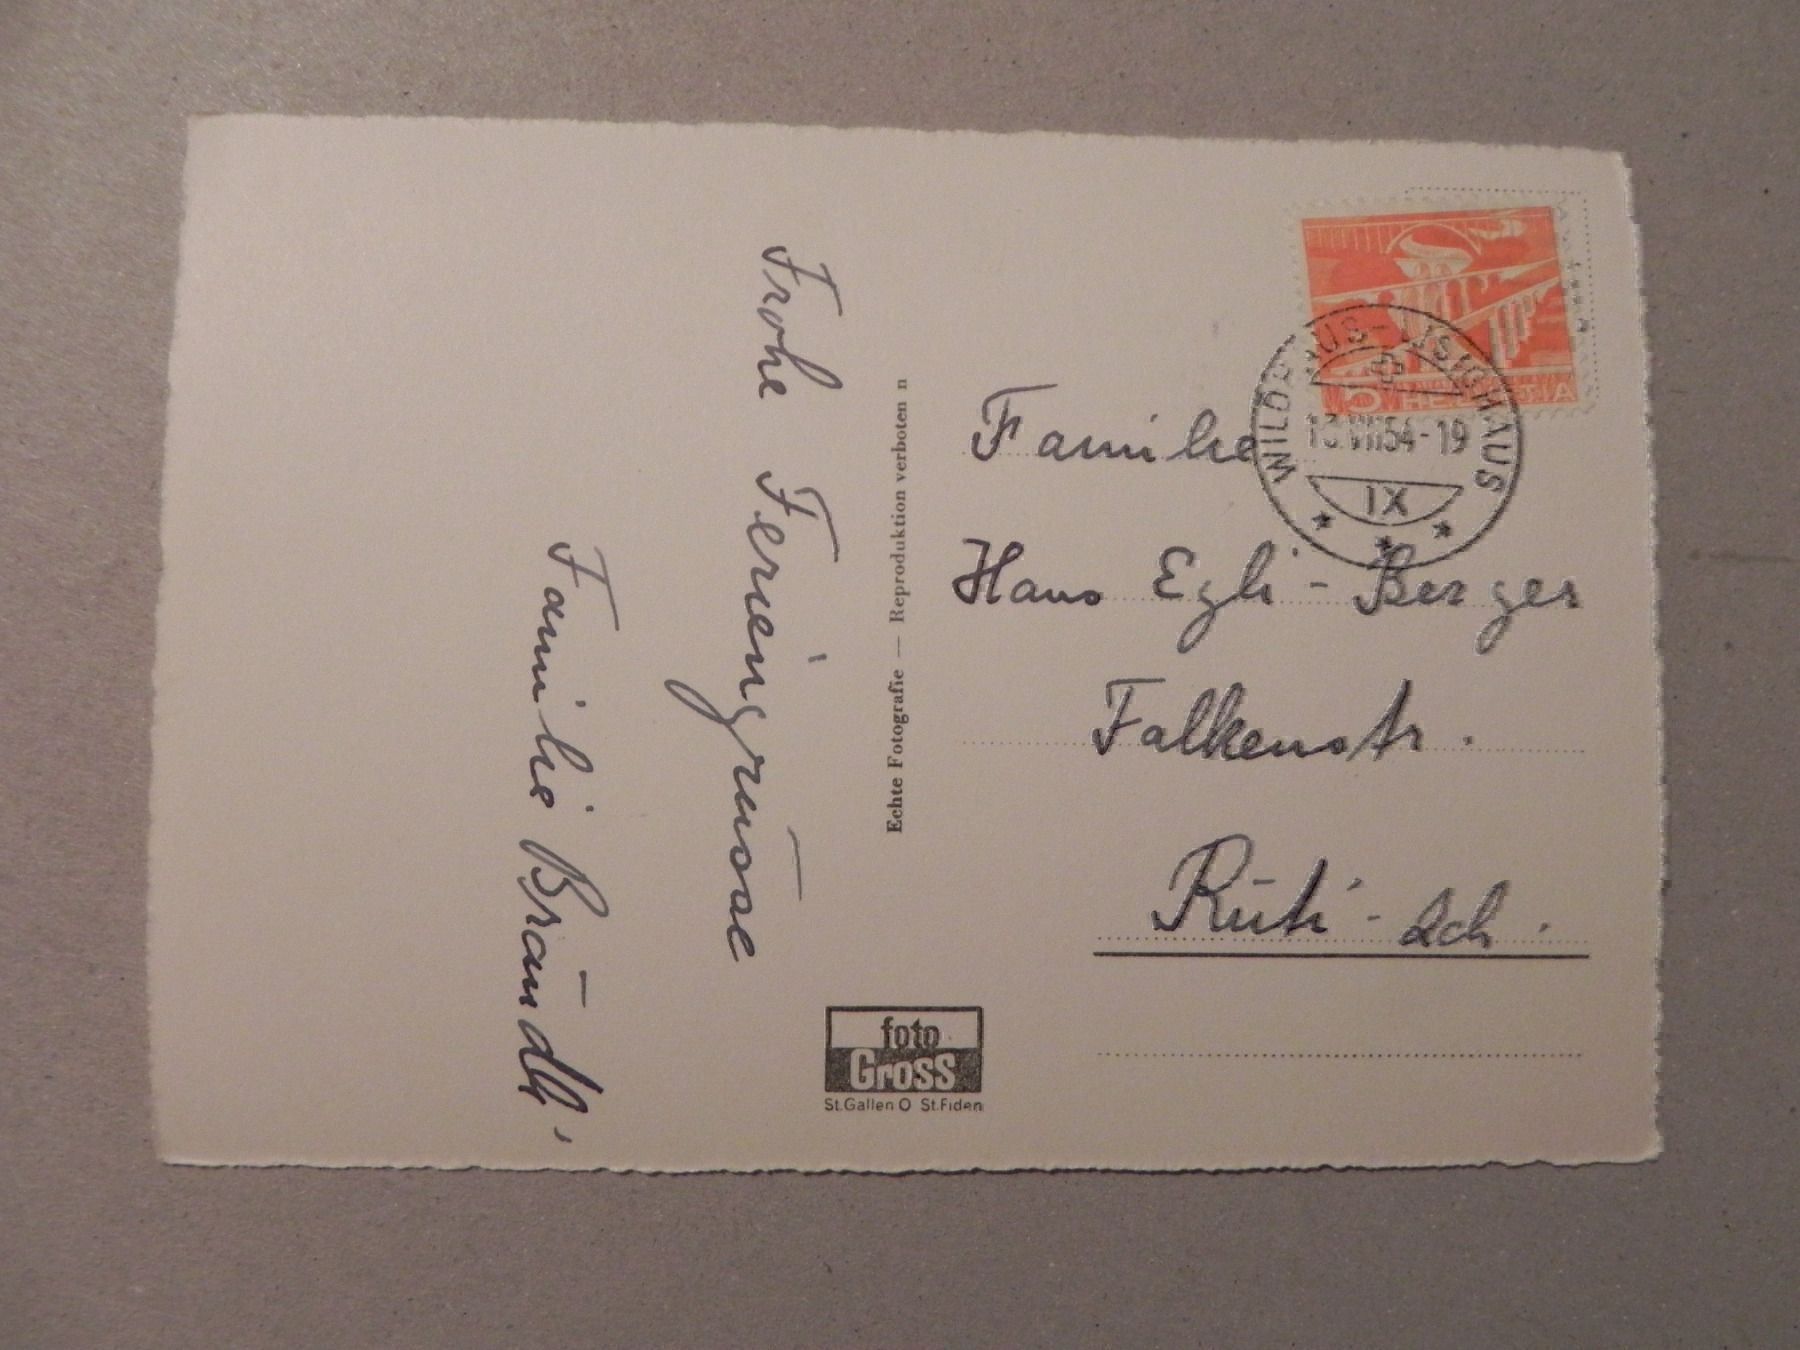 Frohe Feriengrüsse
Familie Brändli
Echte Fotografie — Reproduktion verboten n
5 HELVETIA
WILDHAUS-LISIGHAUS
54-19
IX
Familie
Hans Egli-Berger
Falkenstr.
Rüti-Zch.
foto
Gross
St.Gallen O St.Fiden